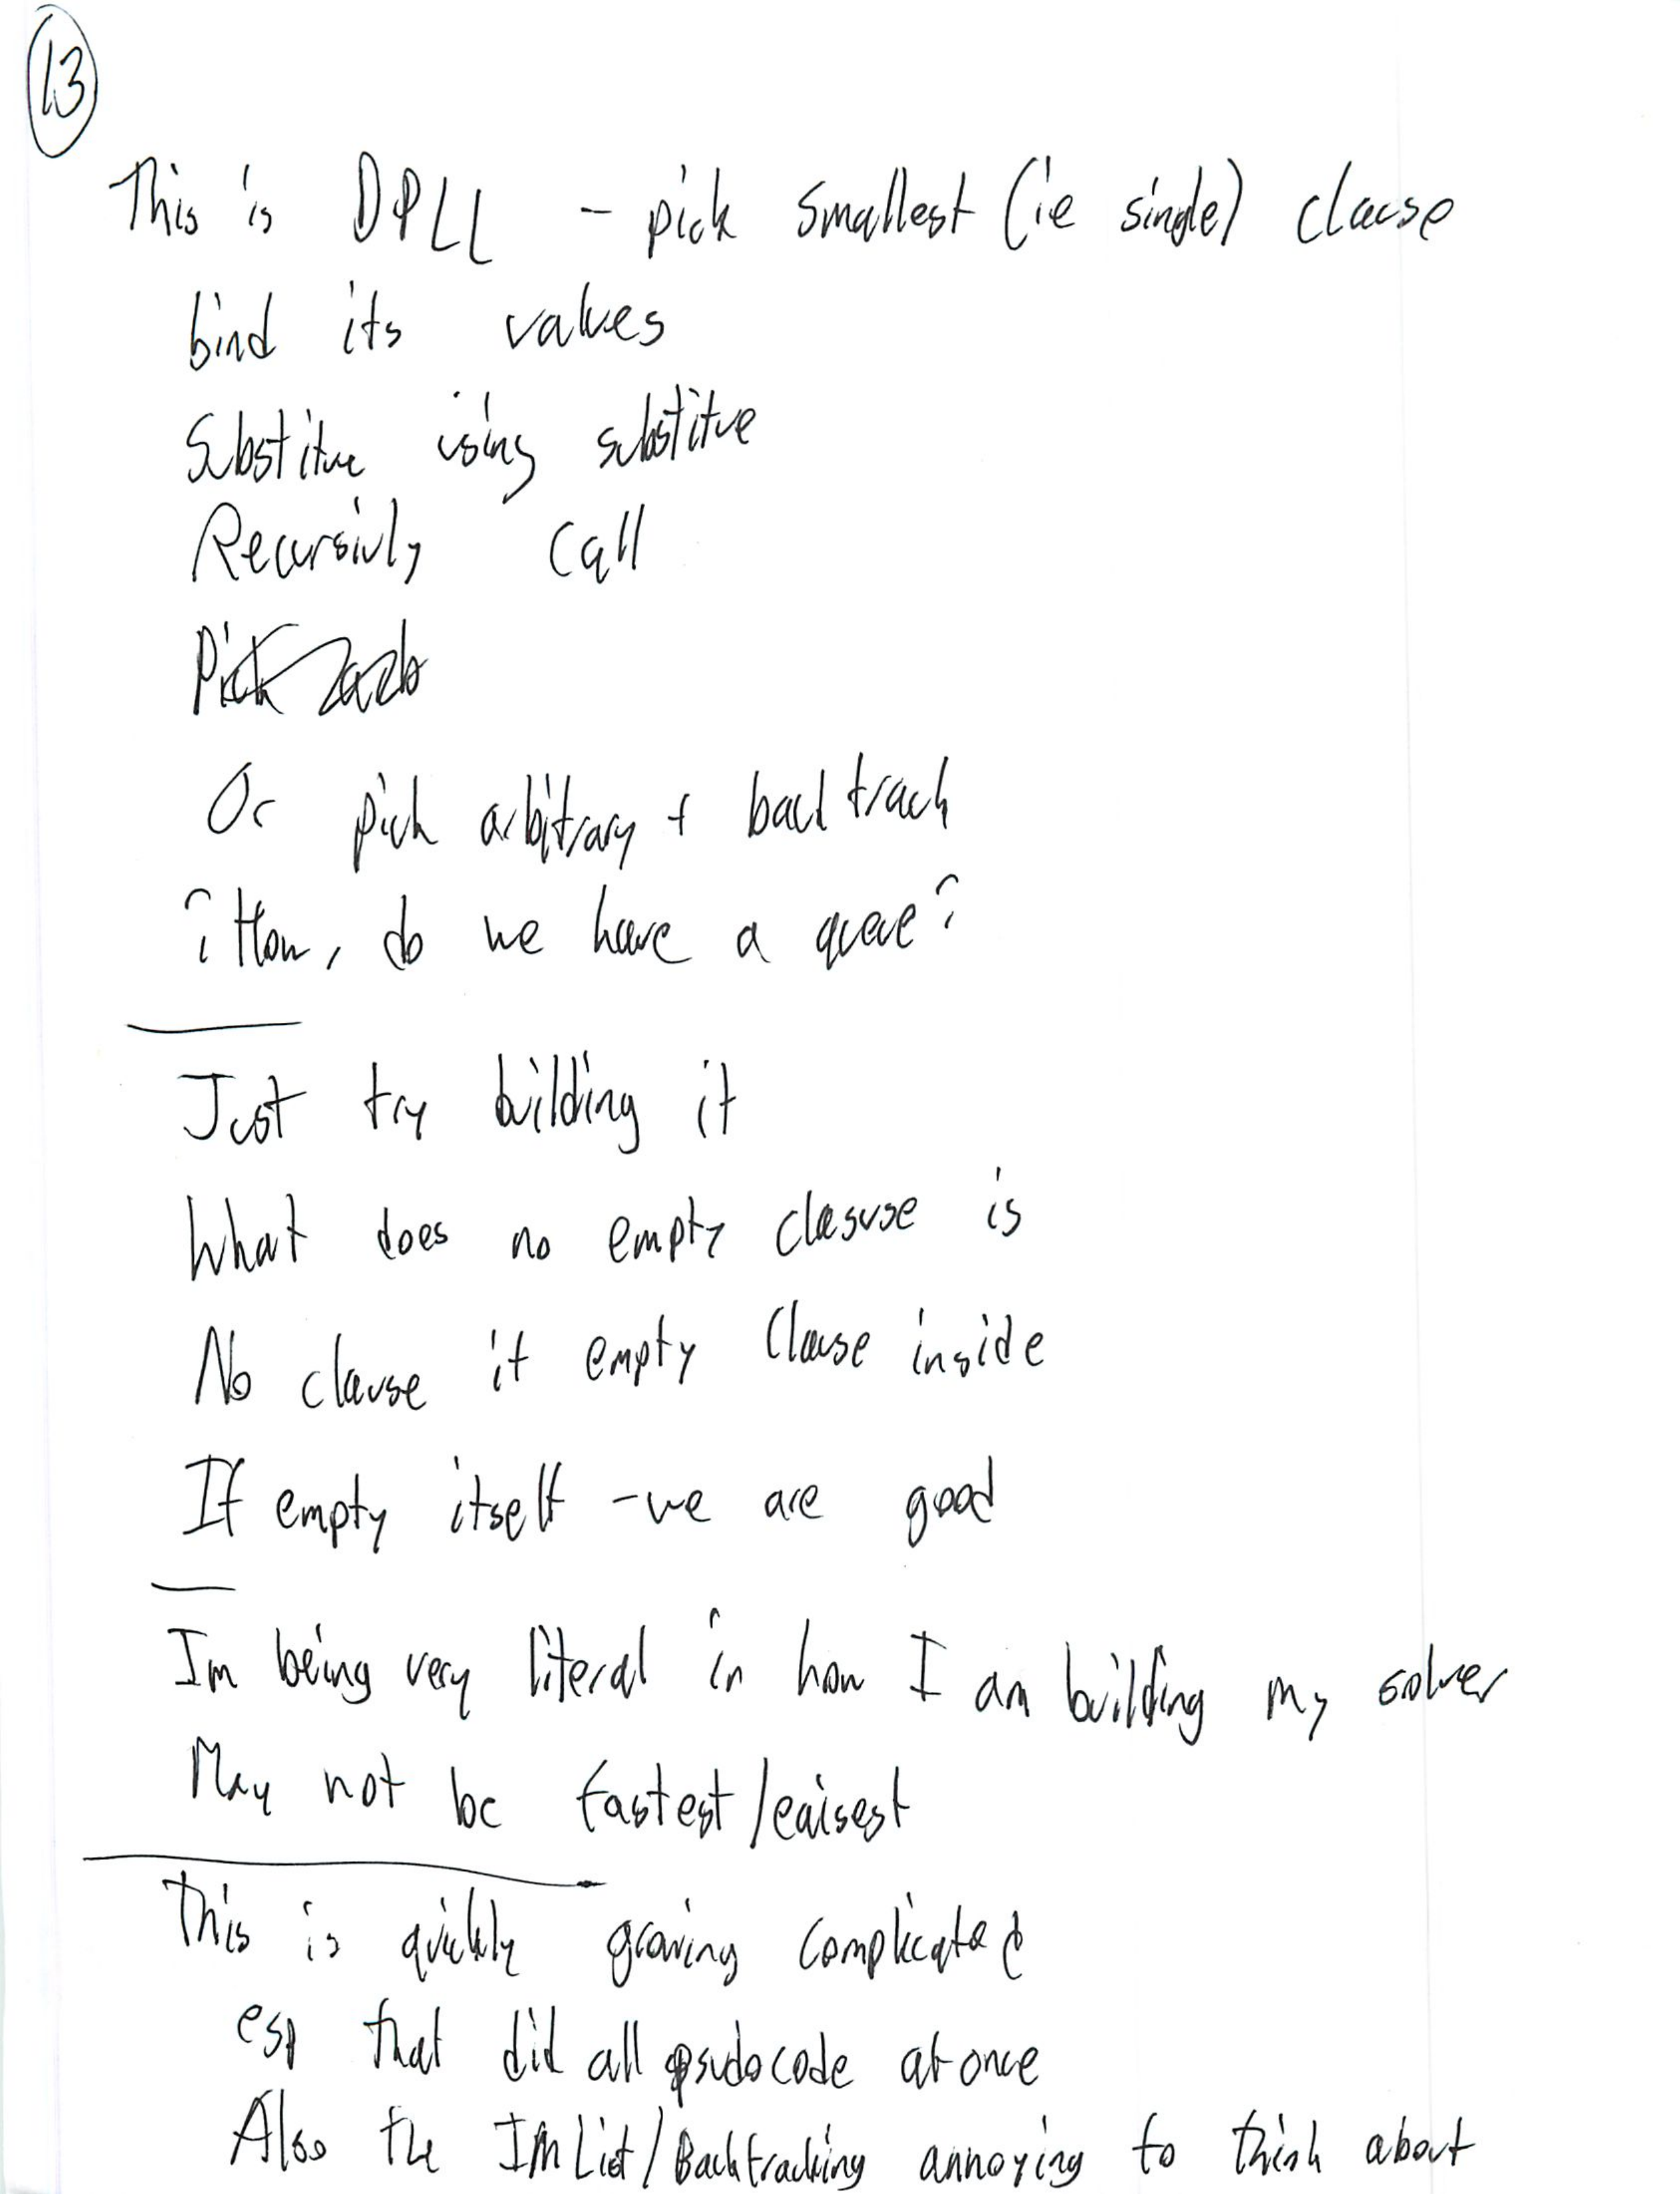 13
This is DPLL - pick smallest (ie single) clause
bind its values
Substitue using substitue
Recursivly call
Pick
Or pick arbitrary + backtrack
¿How, do we have a queue?
Just try building it
What does no empty clasuse is
No clause if empty clause inside
If empty itself - we are good
Im being very literal in how I am building my solver
May not be fastest/eaisest
This is quickly growing complicated
esp that did all psudocode at once
Also the ImList/Backtracking annoying to think about